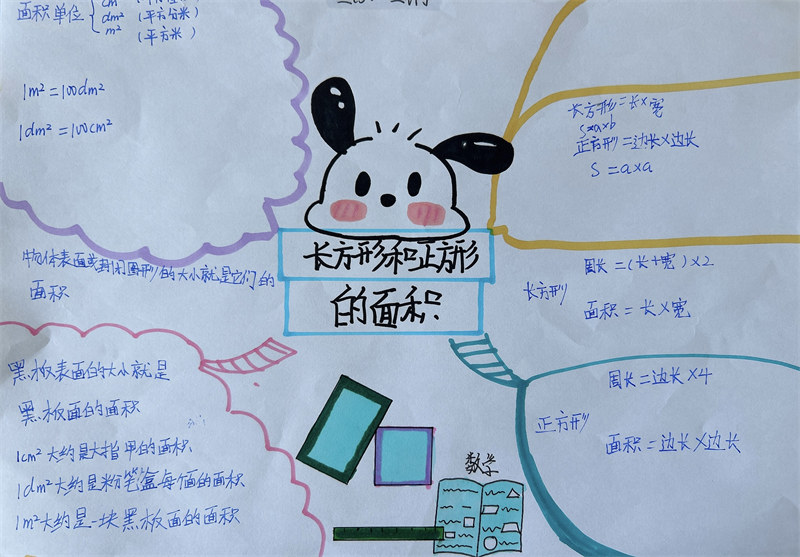 面积单位
cm²
dm² (平方分米)
m² (平方米)
1m²=100dm²
1dm²=100cm²
长方形=长×宽
S=a×b
正方形=边长×边长
S=a×a
长方形和正方形
的面积
物体表面或封闭图形的大小就是它们的
面积
长方形
周长=(长+宽)×2
面积=长×宽
黑板表面的大小就是
黑板面的面积
1cm²大约是大指甲的面积
1dm²大约是粉笔盒每个面的面积
1m²大约是一块黑板面的面积
正方形
周长=边长×4
面积=边长×边长
数学